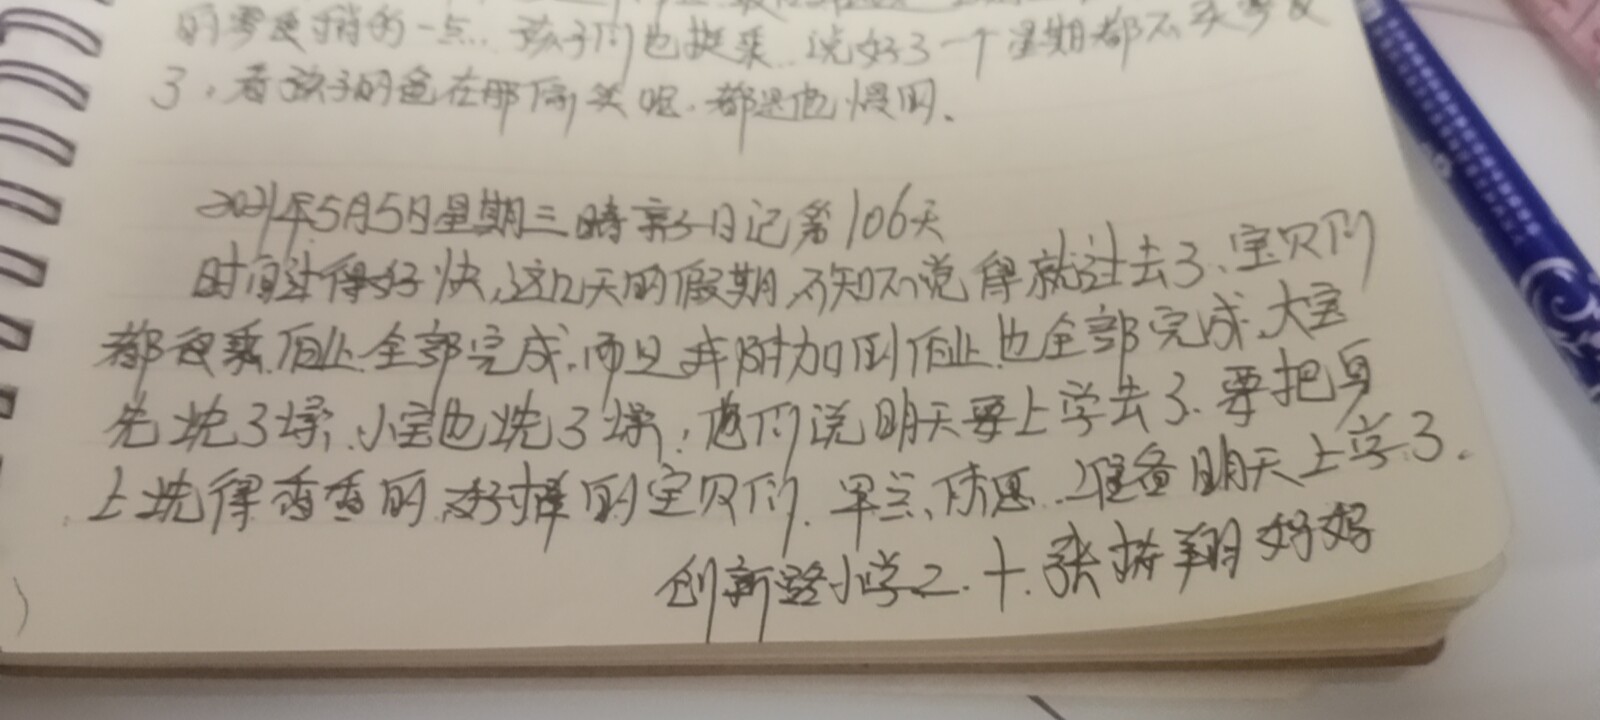 一点.孩子们也挺乘..说好了一个星期都不买零食
了,看孩子的爸在那偷笑呢.都是他惯的.
2021年5月5日星期三晴亲子日记第106天
时间过得好快,这几天的假期,不知不觉得就过去了、宝贝们
都很乘.作业.全部完成,而且我附加的作业.也全部完成、大宝
先洗了澡,小宝也洗了澡,他们说明天要上学去了.要把身
上洗得香香的.好样的宝贝们.早点休息..准备明天上学了.
创新路小学2.十.张 翔妈妈